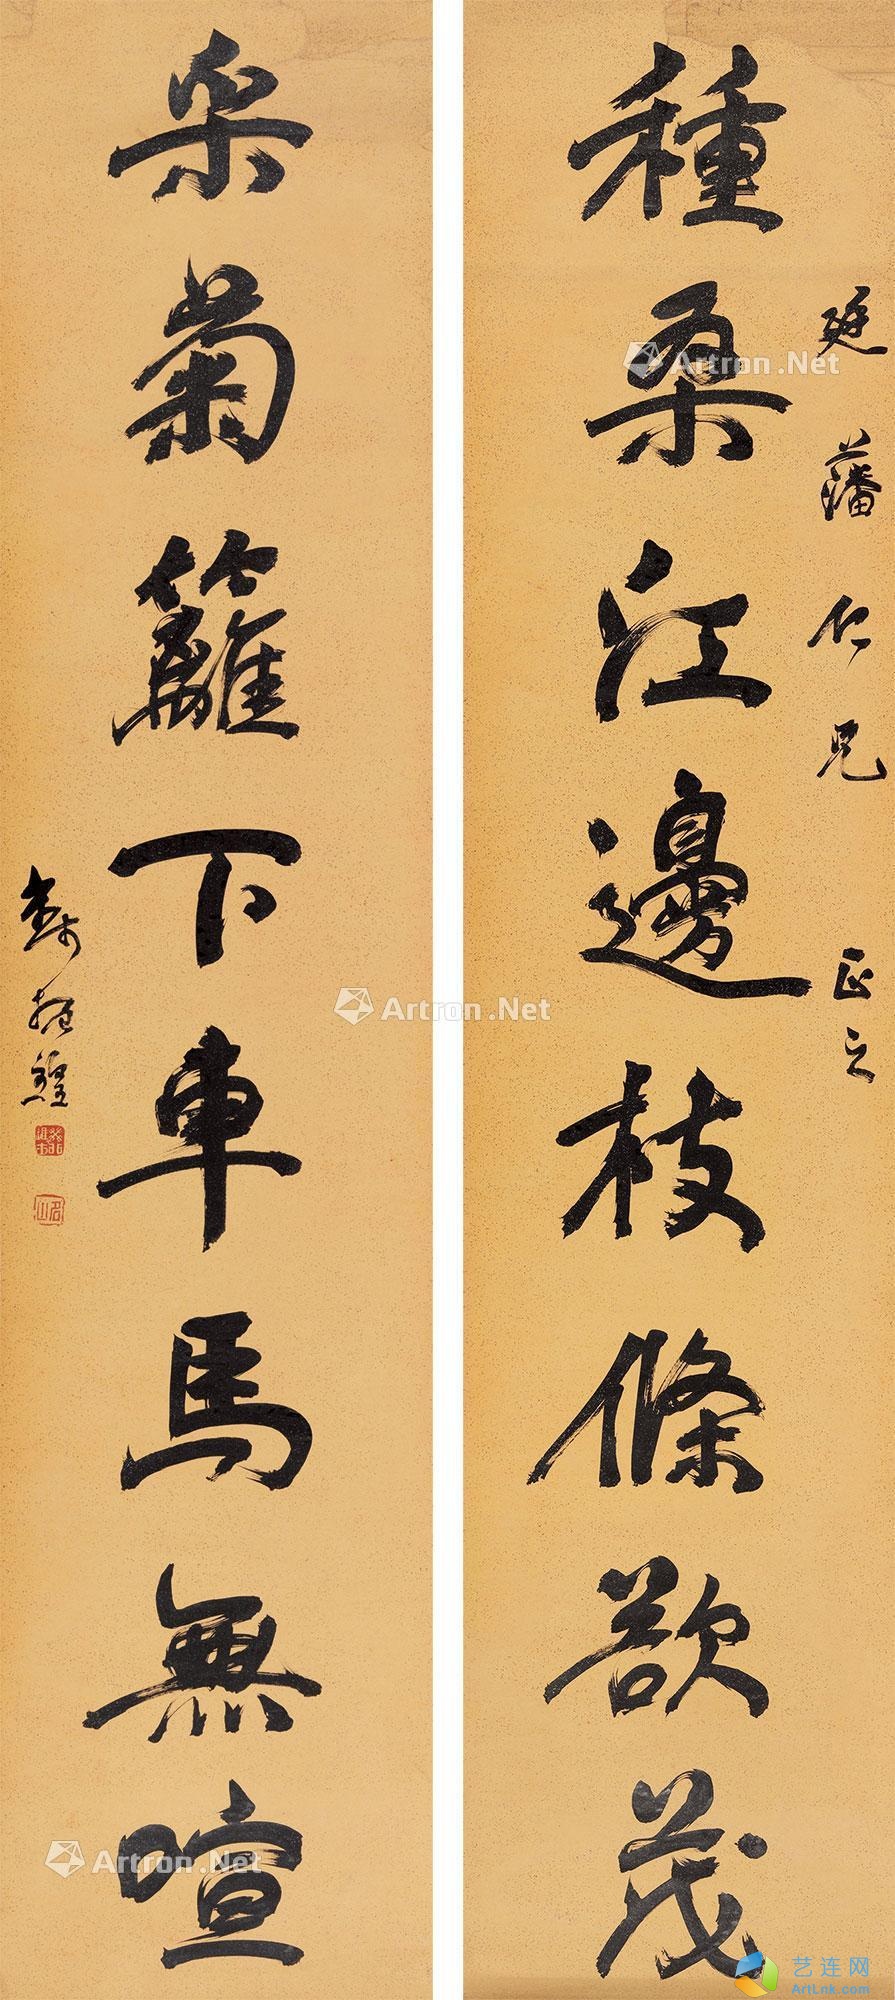 廷藩仁兄正之
種桑江邊枝條欲茂
采菊籬下車馬無喧
Artron.Net
Artron.Net
Artron.Net
艺连网
ArtLnk.com